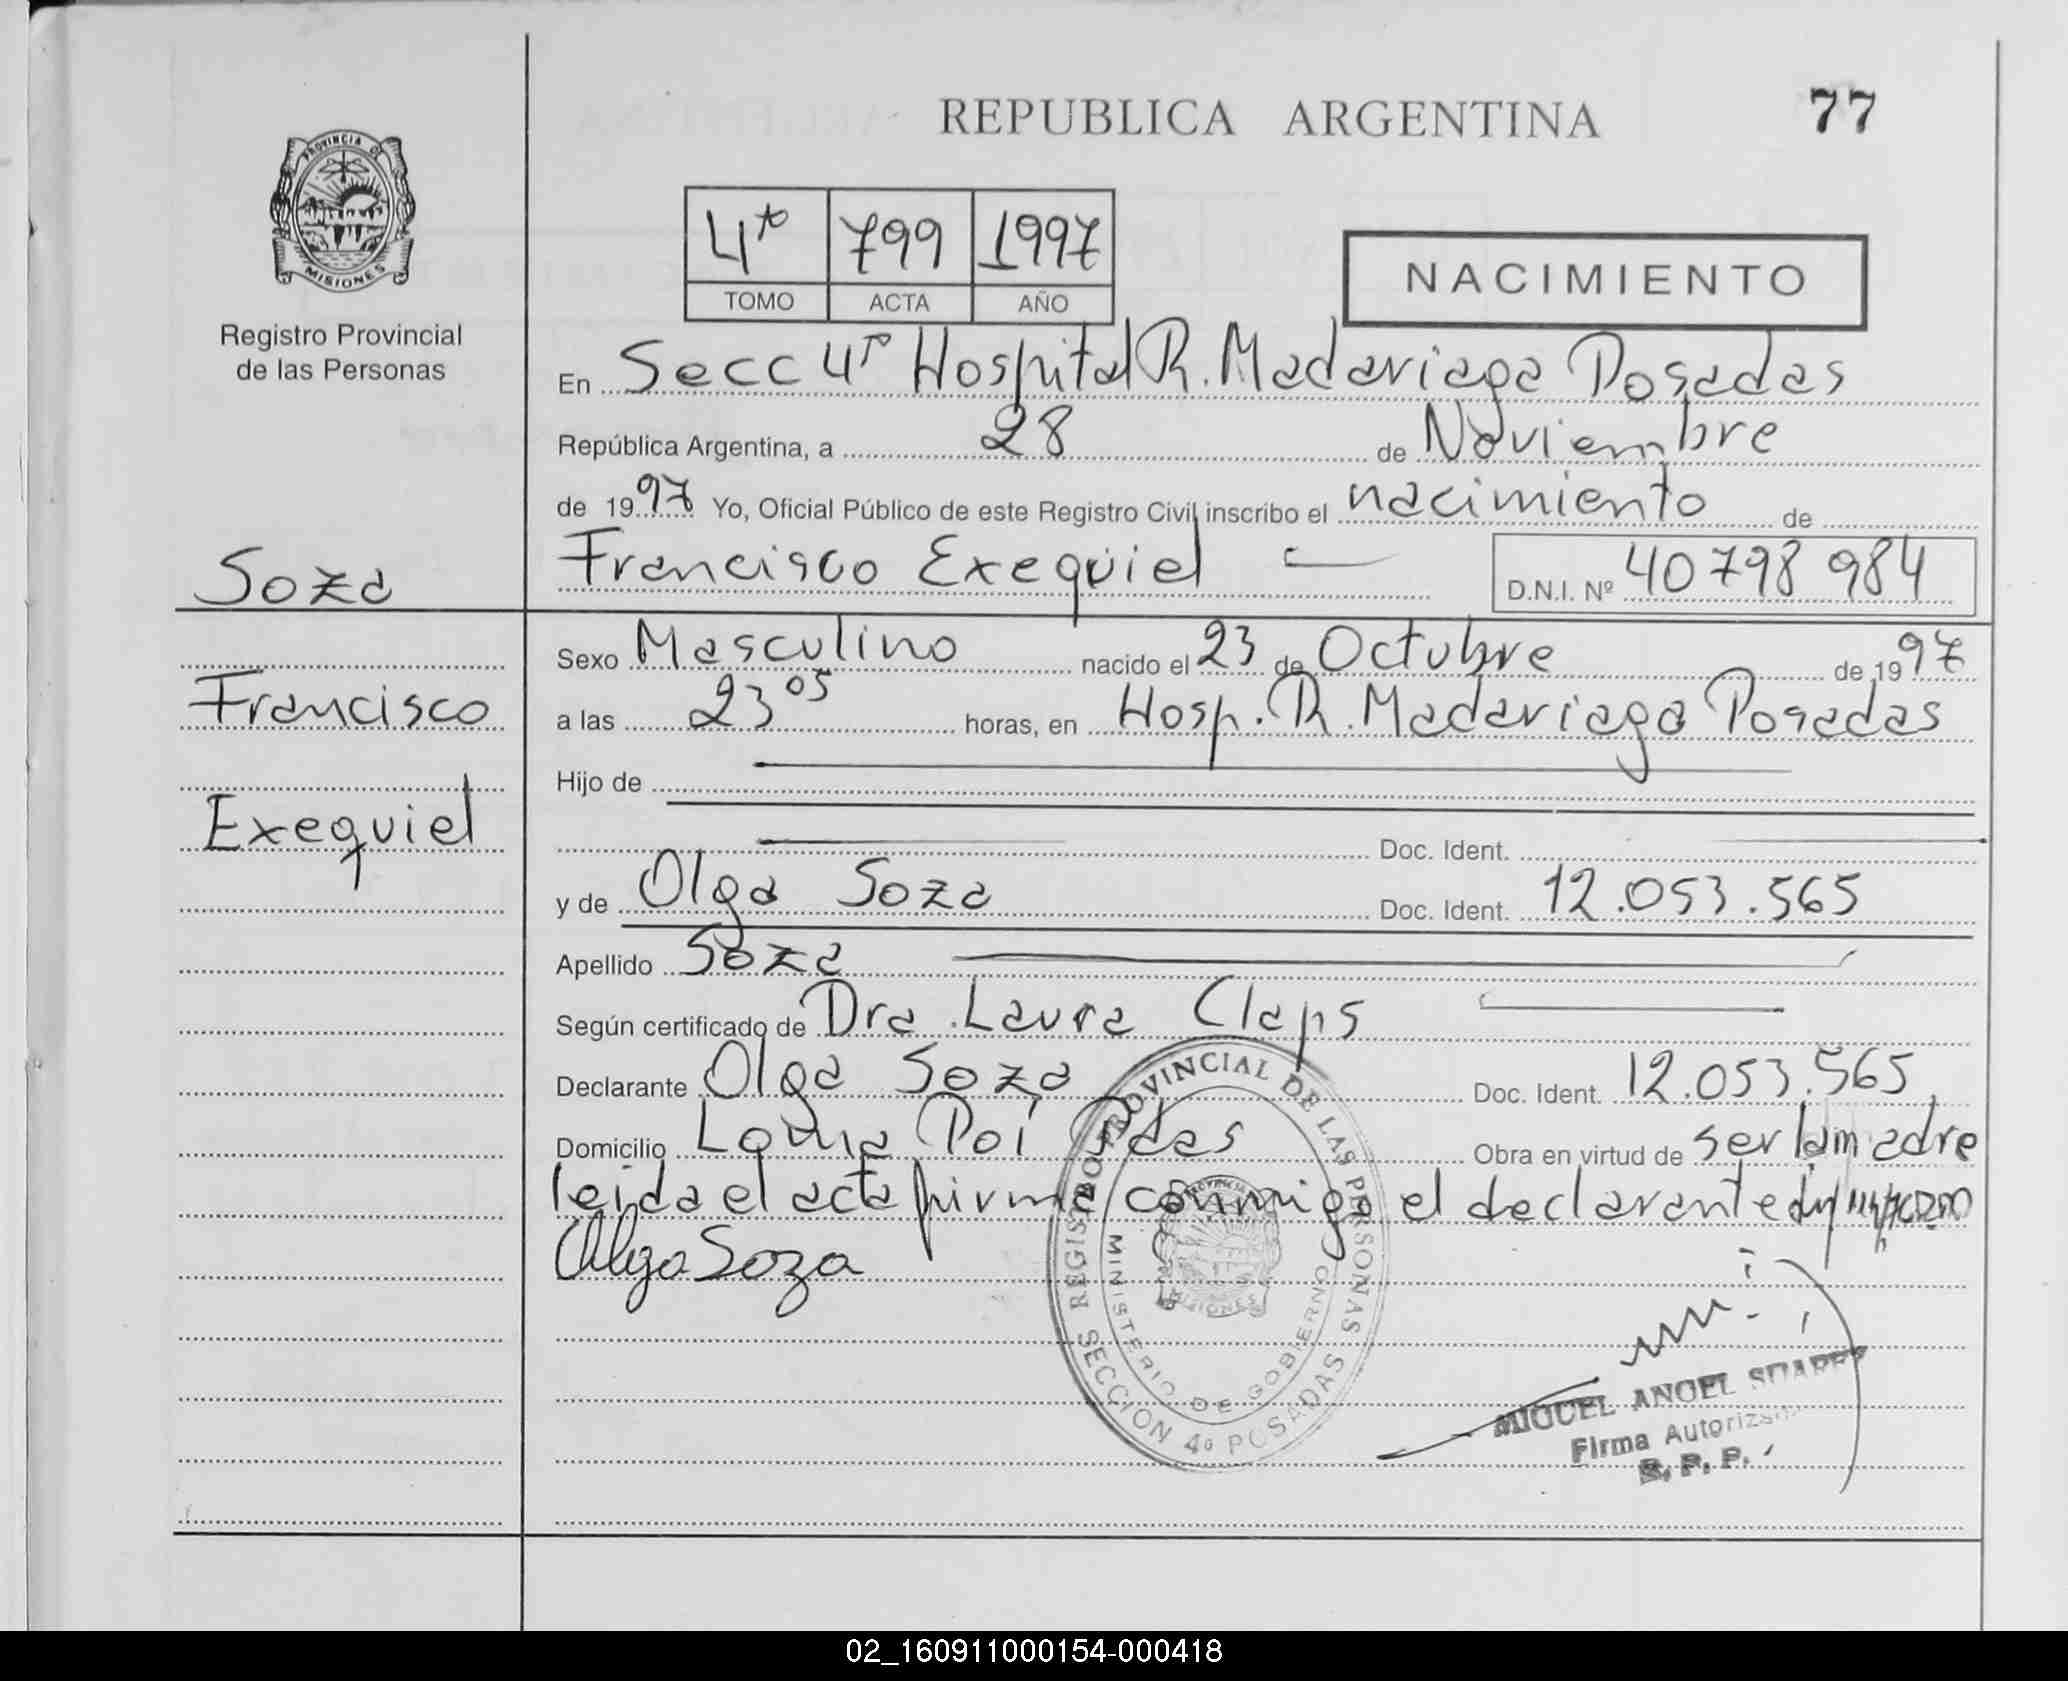 REPUBLICA ARGENTINA
77
PROVINCIA DE
MISIONES
Registro Provincial
de las Personas
4to 799 1997
TOMO ACTA AÑO
NACIMIENTO
En Secc 4ta Hospital R. Madariaga Posadas
República Argentina, a 28 de Noviembre
de 1997 Yo, Oficial Público de este Registro Civil inscribo el nacimiento de
Soza
Francisco Exequiel
D.N.I. Nº 40798984
Sexo Masculino nacido el 23 de Octubre de 1997
Francisco
a las 23 05 horas, en Hosp. R. Madariaga Posadas
Hijo de
Exequiel
Doc. Ident.
y de Olga Soza Doc. Ident. 12.053.565
Apellido Soza
Según certificado de Dra. Laura Claps
Declarante Olga Soza Doc. Ident. 12.053.565
Domicilio Loma Poi Pdas Obra en virtud de ser la madre
leida el acta firma conmigo el declarante
Olga Soza
REGISTRO PROVINCIAL DE LAS PERSONAS
MINISTERIO DE GOBIERNO
SECCION 4ª POSADAS
PROVINCIA
MISIONES
MIGUEL ANGEL SUAREZ
Firma Autorizada
R. P. P.
02_160911000154-000418